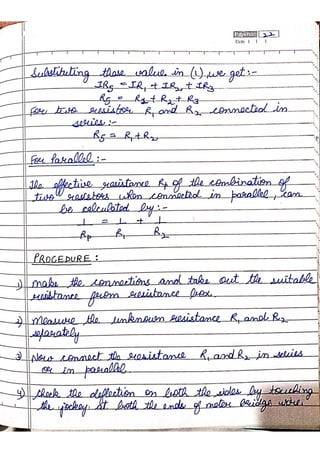 Page No. 22
Date
Substituting these value in (1), we get :-
IRs = IR1 + IR2 + IR3
Rs = R1 + R2 + R3
For two resistor R1 and R2 connected in
series :-
Rs = R1+R2
For Parallel :-
The effective resistance Rp of the combination of
two resistors when connected in parallel, can
be calculated by :-
1/Rp = 1/R1 + 1/R2
PROCEDURE :
1) Make the connections and take out the suitable
resistance from resistance box.
2) Measure the unknown resistance R1 and R2
separately
3) Now connect the resistance R1 and R2 in series
or in parallel.
4) Check the deflection on both the sides by touching
the jockey at both the ends of meter bridge wire.